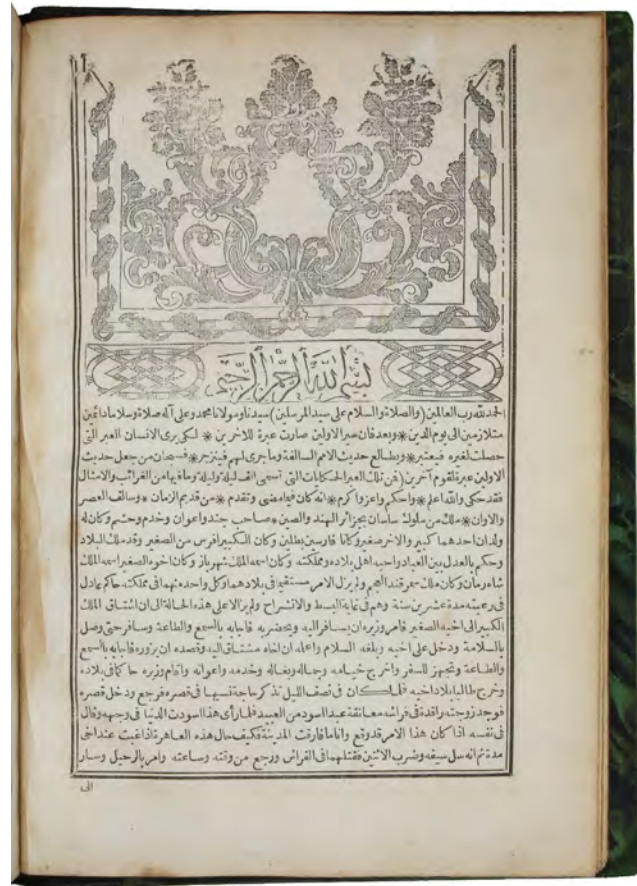 بسم الله الرحمن الرحيم
الحمد لله رب العالمين (والصلاة والسلام على سيد المرسلين) سيدنا ومولانا محمد وعلى آله صلاة وسلاما دائمين
متلازمين الى يوم الدين * وبعد فان سير الاولين صارت عبرة للاخرين * لكى يرى الانسان العبر التى
حصلت لغيره فيعتبر * ويطالع حديث الامم السالفة وما جرى لهم فينزجر * فسبحان من جعل حديث
الاولين عبرة لقوم آخرين (فمن تلك العبر الحكايات التى تسمى الف ليلة وليلة وما فيها من الغرائب والامثال
فقد حكى والله اعلم * واحكم واعز واكرم * انه كان فيما مضى وتقدم * من قديم الزمان * وسالف العصر
والاوان * ملك من ملوك ساسان بجزائر الهند والصين * صاحب جند واعوان وخدم وحشم وكان له
ولدان احدهما كبير والاخر صغير وكانا فارسين بطلين وكان الكبير افرس من الصغير وقد ملك البلاد
وحكم بالعدل بين العباد واحبه اهل بلاده ومملكته وكان اسمه الملك شهرباز وكان اخوه الصغير اسمه الملك
شاه زمان وكان ملك سمرقند العجم ولم يزل الامر مستقيما فى بلادهما وكل واحد منهما فى مملكته حاكم عادل
فى رعيته مدة عشرين سنة وهم فى غاية البسط والانشراح ولم يزالا على هذه الحالة الى ان اشتاق الملك
الكبير الى اخيه الصغير فامر وزيره ان يسافر اليه ويحضر به فاجابه بالسمع والطاعة وسافر حتى وصل
بالسلامة ودخل على اخيه وبلغه السلام واعلمه ان اخاه مشتاق اليه وقصده ان يزوره فاجابه بالسمع
والطاعة وتجهز للسفر واخرج خيامه وجماله وبغاله وخدمه واعوانه واقام وزيره حاكما فى بلاده
وخرج طالبا بلاد اخيه فلما كان فى نصف الليل تذكر حاجة نسيها فى قصره فرجع ودخل قصره
فوجد زوجته راقدة فى فراشه معانقة عبدا اسود من العبيد فلما رأى هذا اسودت الدنيا فى وجهه وقال
فى نفسه اذا كان هذا الامر قد وقع وانا ما فارقت المدينة فكيف حال هذه العاهرة اذا غبت عند اخى
مدة ثم انه سل سيفه وضرب الاثنين فقتلهما فى الفراش ورجع من وقته وساعته وامر بالرحيل وسار
الى